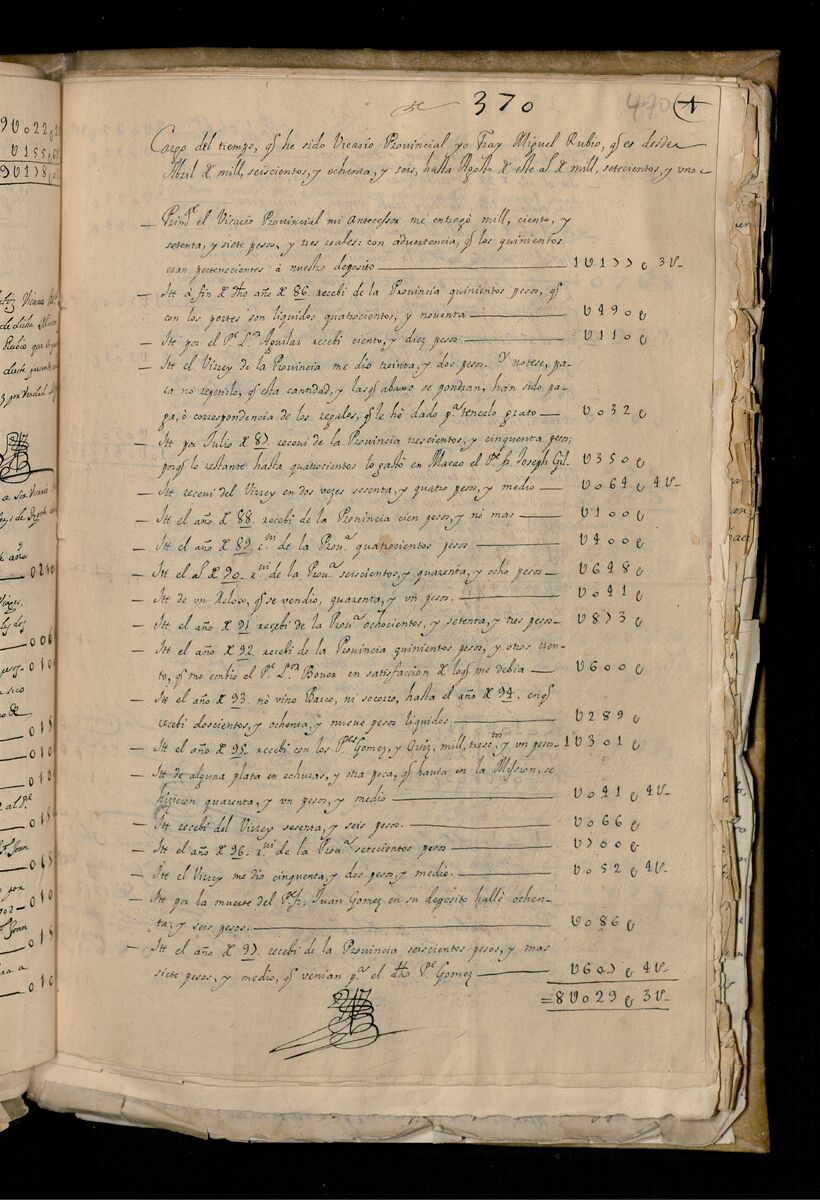 370
470
1
Cargo del tiempo, q̃ he sido Vicario Provincial yo Fray Miguel Rubio, q̃ es desde
Abril de mill, seiscientos, y ochenta, y seis, hasta Agosto de este al de mill, setecientos, y uno
— Prim.te el Vicario Provincial mi Antecessor me entregò mill, ciento, y
setenta, y siete pesos, y tres reales: con advertencia, q̃ los quinientos
eran pertenecientes à nuestro deposito — 1U177 3U-
— Itt à fin de dho año de 86. recebi de la Provincia quinientos pesos, q̃
con los portes son liquidos quatrocientos, y noventa — U490
— Itt por el P.e L.or Aguilar recebi ciento, y diez pesos — U110
— Itt el Virrey de la Provincia me dio treinta, y dos pesos. Y notese, pa-
ra no repetirlo, q̃ esta cantidad, y las q̃ abaxo se pondran, han sido pa-
ga, ò correspondencia de los regalos, q̃ le hè dado p.a tenerlo grato — U032
— Itt por Julio de 87 recevi de la Provincia trescientos, y cinquenta pesos;
porq̃ lo restante hasta quatrocientos lo gastò en Macao el P.e fr. Joseph Gil- U350
— Itt recevi del Virrey en dos vezes sesenta, y quatro pesos, y medio — U064 4U-
— Itt el año de 88. recebi de la Provincia cien pesos, y nò mas — U100
— Itt el año de 89. r.vi de la Prov.a quatrocientos pesos — U400
— Itt el al de 90. r.vi de la Prov.a seiscientos, y quarenta, y ocho pesos — U648
— Itt de un Relox, q̃ se vendio, quarenta, y vn pesos. — U041
— Itt el año de 91 recebi de la Prov.a ochocientos, y setenta, y tres pesos — U873
— Itt el año de 92. recebi de la Provincia quinientos pesos, y otros cien-
to, q̃ me embio el P.e L.or Bover en satisfaccion de lo q̃ me debia — U600
— Itt el año de 93. nò vino Barco, ni socorro, hasta el año de 94. en q̃
recebi doscientos, y ochenta, y nueve pesos liquidos — U289
— Itt el año de 95. recebi con los P.es Gomez, y Ortiz, mill, tresc.tos, y vn pesos- 1U301
— Itt de alguna plata en echuras, y otra poca, q̃ havia en la Mission, se
hizieron quarenta, y vn pesos, y medio — U041 4U-
— Itt recebi del Virrey sesenta, y seis pesos. — U066
— Itt el año de 96. r.vi de la Prov.a setecientos pesos — U700
— Itt el Virrey me dio cinquenta, y dos pesos, y medio. — U052 4U-
— Itt por la muerte del P.e fr. Juan Gomez en su deposito hallè ochen-
ta, y seis pesos. — U086
— Itt el año de 97. recebi de la Provincia seiscientos pesos, y mas
siete pesos, y medio, q̃ venian p.a el dho P.e Gomez — U607 4U-
=8U029 3U-